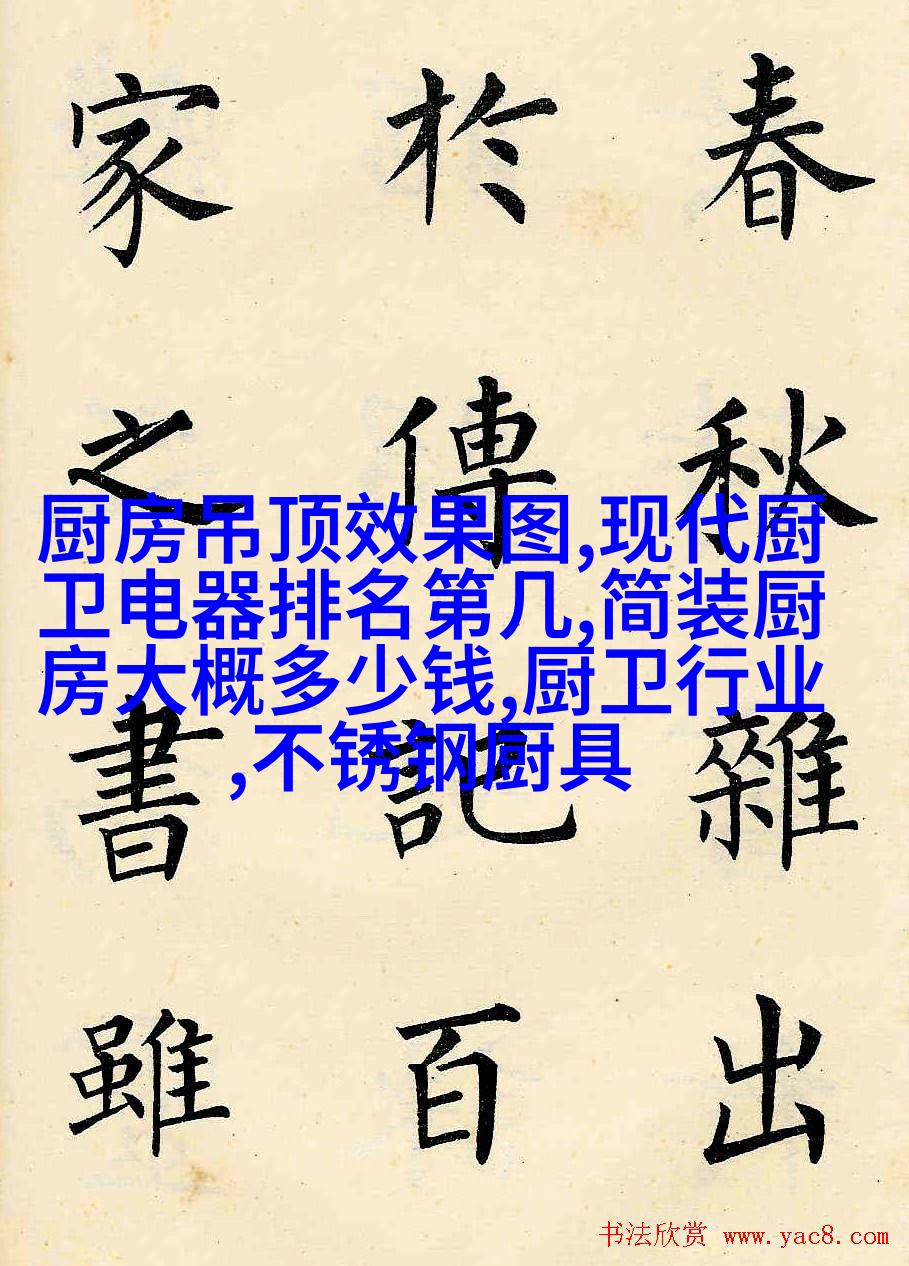 春秋雜出
於傳記百
家之書雖
厨房吊顶效果图,现代厨
卫电器排名第几,简装厨
房大概多少钱,厨卫行业
,不锈钢厨具
书法欣赏 www.yac8.com